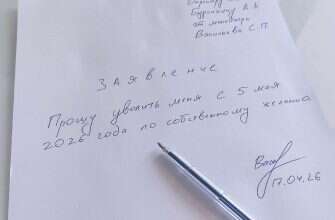 Бурракову А. В.
от менеджера
Васильева С. П.
ЗАЯВЛЕНИЕ
Прошу уволить меня с 5 мая
2026 года по собственному желанию
17.04.26